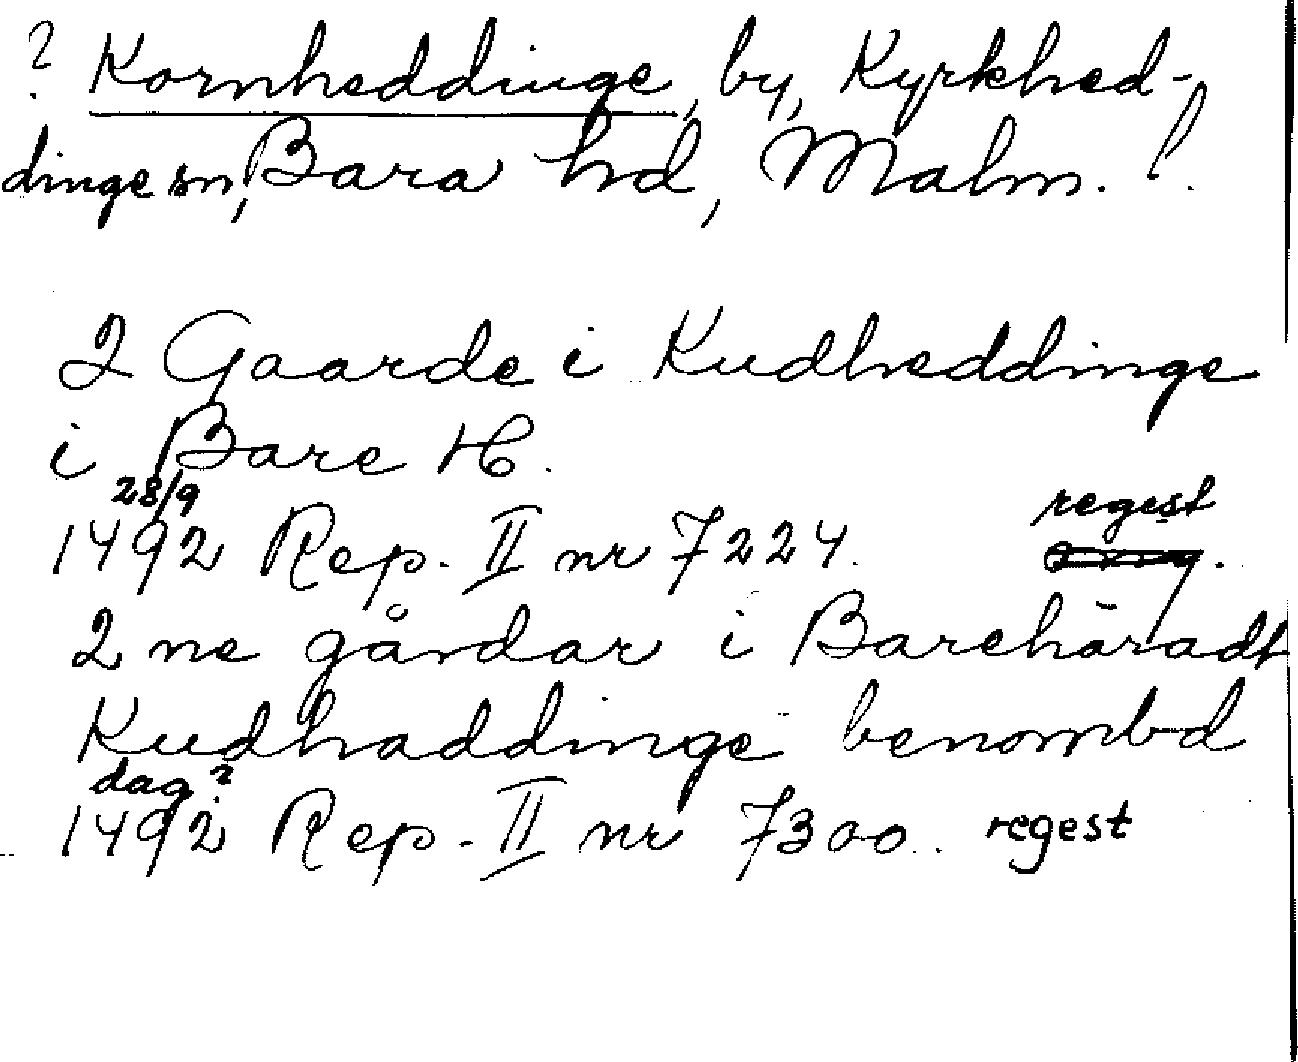 ? Kornheddinge, by, Kyrkhed-
dinge sn, Bara hd, Malm. ?
2 Gaarde i Kudheddinge
i Bare H.
28/9 regest
1492 Rep. II nr 7224.
2 ne gårdar i Barehäradt
Kudhaddinge benombd
dag?
1492 Rep. II nr 7300. regest